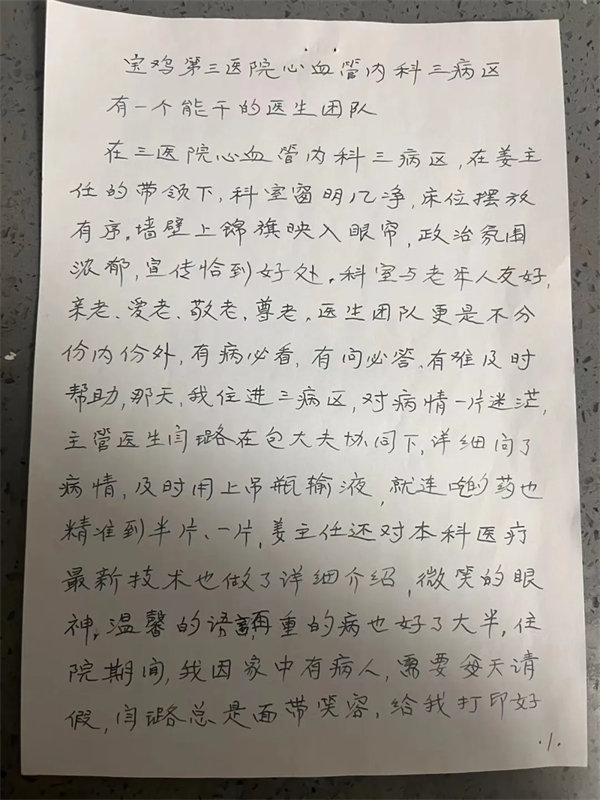 宝鸡第三医院心血管内科三病区
有一个能干的医生团队
在三医院心血管内科三病区,在姜主
任的带领下,科室窗明几净,床位摆放
有序。墙壁上锦旗映入眼帘,政治氛围
浓郁,宣传恰到好处。科室与老年人友好,
亲老、爱老、敬老、尊老。医生团队更是不分
份内份外,有病必看,有问必答、有难及时
帮助,那天,我住进三病区,对病情一片迷茫,
主管医生闫璐在包大夫协同下,详细问了
病情,及时用上吊瓶输液,就连吃的药也
精准到半片、一片,姜主任还对本科医疗
最新技术也做了详细介绍,微笑的眼
神,温馨的语再重的病也好了大半,住
院期间,我因家中有病人,需要每天请
假,闫璐总是面带笑容,给我打印好
.1.